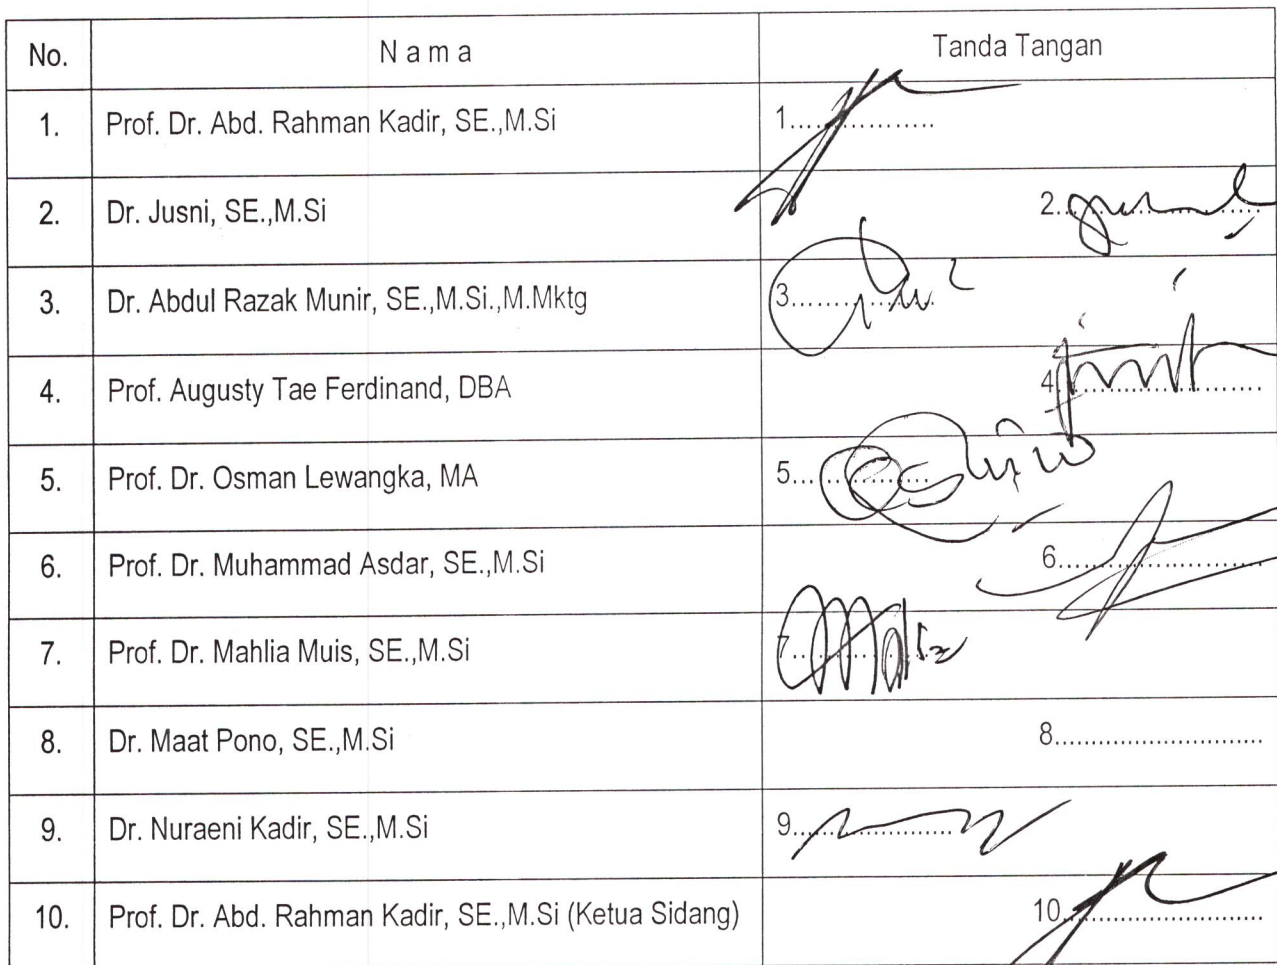 No. N a m a Tanda Tangan
1. Prof. Dr. Abd. Rahman Kadir, SE.,M.Si 1..................
2. Dr. Jusni, SE.,M.Si 2............................
3. Dr. Abdul Razak Munir, SE.,M.Si.,M.Mktg 3..................
4. Prof. Augusty Tae Ferdinand, DBA 4............................
5. Prof. Dr. Osman Lewangka, MA 5..................
6. Prof. Dr. Muhammad Asdar, SE.,M.Si 6............................
7. Prof. Dr. Mahlia Muis, SE.,M.Si 7..................
8. Dr. Maat Pono, SE.,M.Si 8............................
9. Dr. Nuraeni Kadir, SE.,M.Si 9......................
10. Prof. Dr. Abd. Rahman Kadir, SE.,M.Si (Ketua Sidang) 10............................